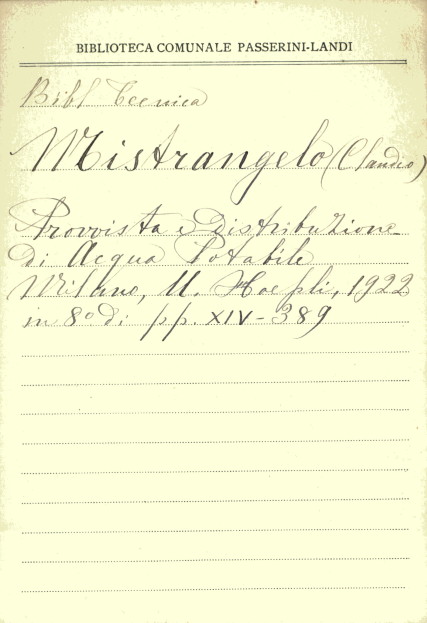 BIBLIOTECA COMUNALE PASSERINI-LANDI
Bibl Tecnica
Mistrangelo (Claudio)
Provvista e Distribuzione
di Acqua Potabile
Milano, U. Hoepli, 1922
in 8° di pp. XIV-389